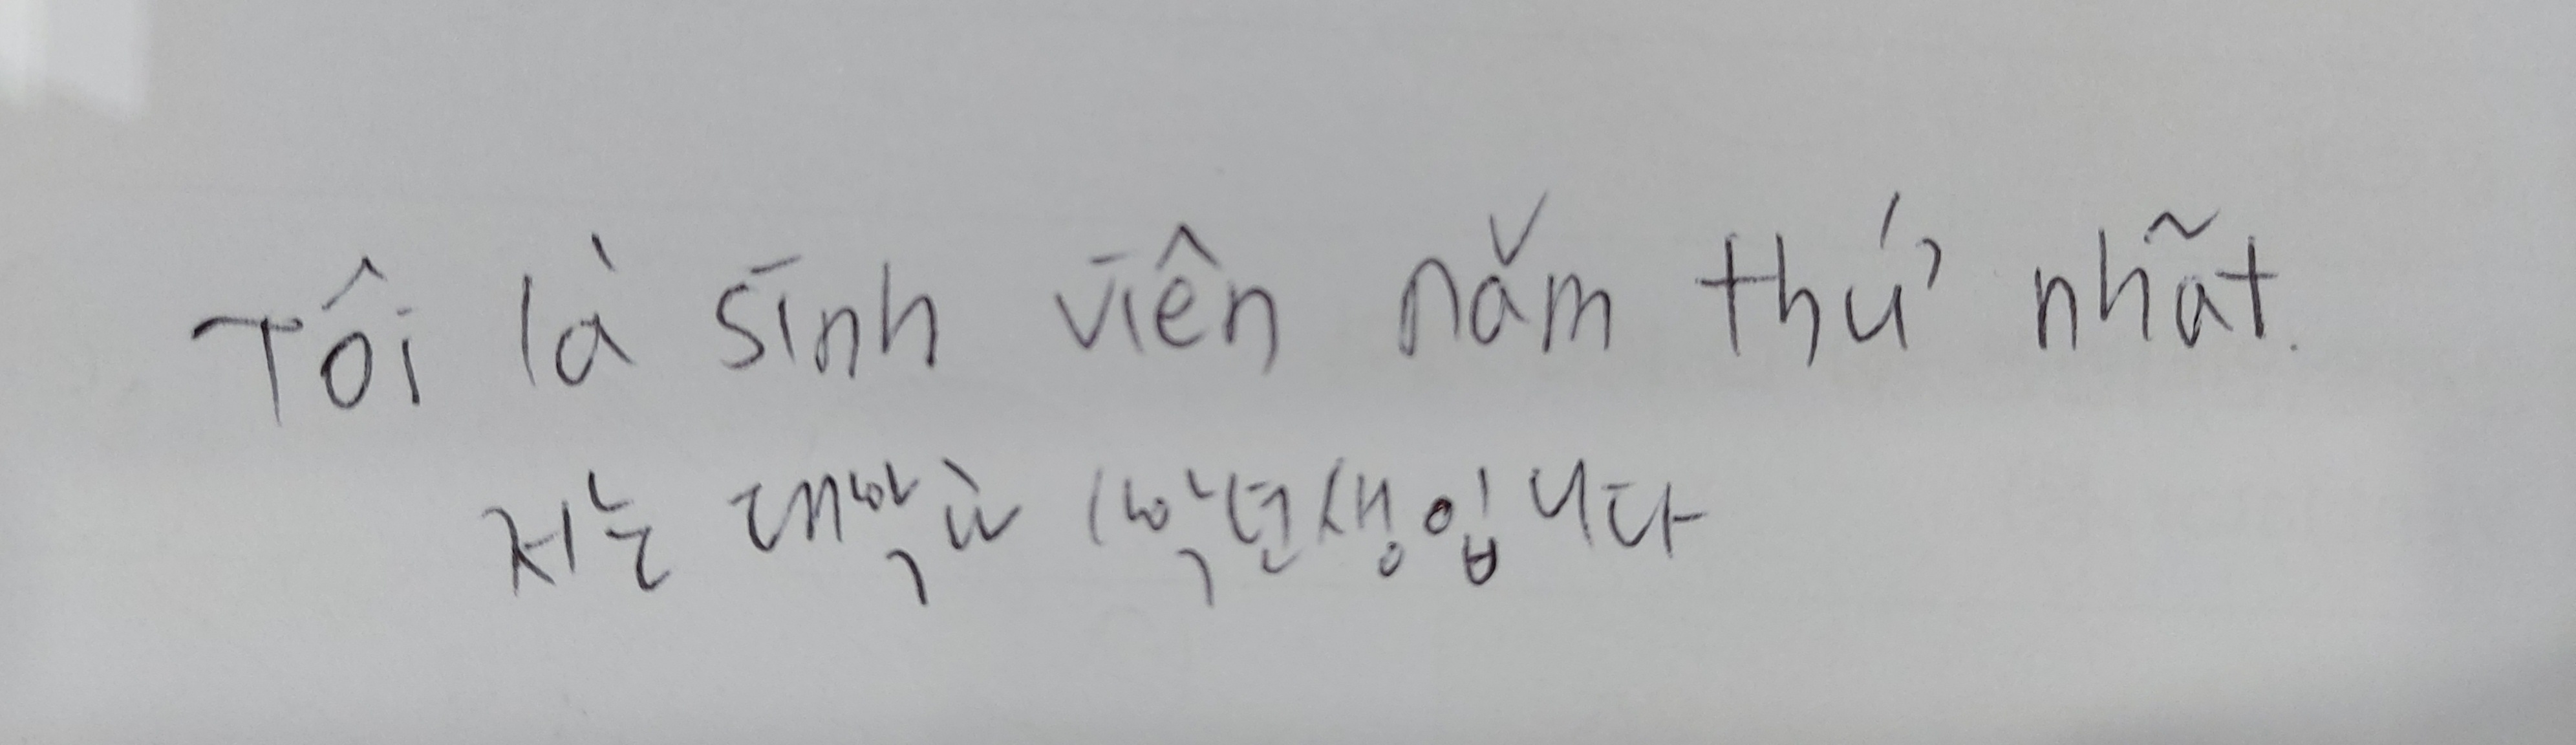 Tôi là sinh viên năm thứ nhãt.
저는 대학교 1학년생입니다